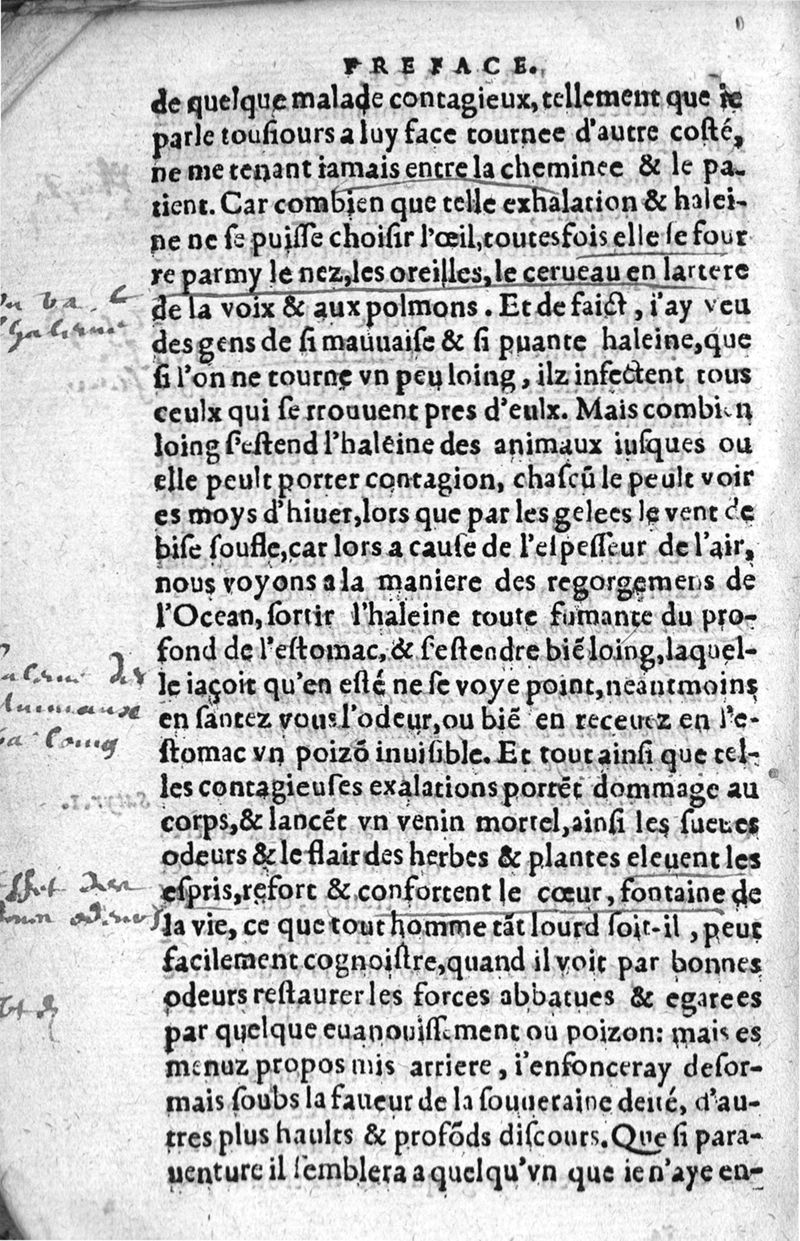 PREFACE.
de quelque malade contagieux, tellement que ie
parle tousiours a luy face tournee d'autre costé,
ne me tenant iamais entre la cheminee & le pa-
tient. Car combien que telle exhalation & halei-
ne ne se puisse choisir l'œil, toutesfois elle se four
re parmy le nez, les oreilles, le cerueau en lartere
de la voix & aux polmons. Et de faict, i'ay veu
des gens de si mauuaise & si puante haleine, que
si l'on ne tourne vn peu loing, ilz infectent tous
ceulx qui se rrouuent pres d'eulx. Mais combien
loing s'estend l'haleine des animaux iusques ou
elle peult porter contagion, chascū le peult voir
es moys d'hiuer, lors que par les gelees le vent de
bise soufle, car lors a cause de l'espesseur de l'air,
nous voyons a la maniere des regorgemens de
l'Ocean, sortir l'haleine toute fumante du pro-
fond de l'estomac, & s'estendre biẽ loing, laquel-
le iaçoit qu'en esté ne se voye point, neantmoins
en santez vous l'odeur, ou biẽ en receuez en l'e-
stomac vn poizõ inuisible. Et tout ainsi que tel-
les contagieuses exalations portẽt dommage au
corps, & lancẽt vn venin mortel, ainsi les sueues
odeurs & le flair des herbes & plantes eleuent les
espris, refort & confortent le cœur, fontaine de
la vie, ce que tout homme tãt lourd soit-il, peut
facilement cognoistre, quand il voit par bonnes
odeurs restaurer les forces abbatues & egarees
par quelque euanouissement ou poizon: mais es
menuz propos mis arriere, i'enfonceray desor-
mais soubs la faueur de la souueraine deité, d'au-
tres plus haults & profõds discours. Que si para-
uenture il semblera a quelqu'vn que ie n'aye en-
va
haleine
haleine des
Animaux
va loing
Effet des
bonn odeurs